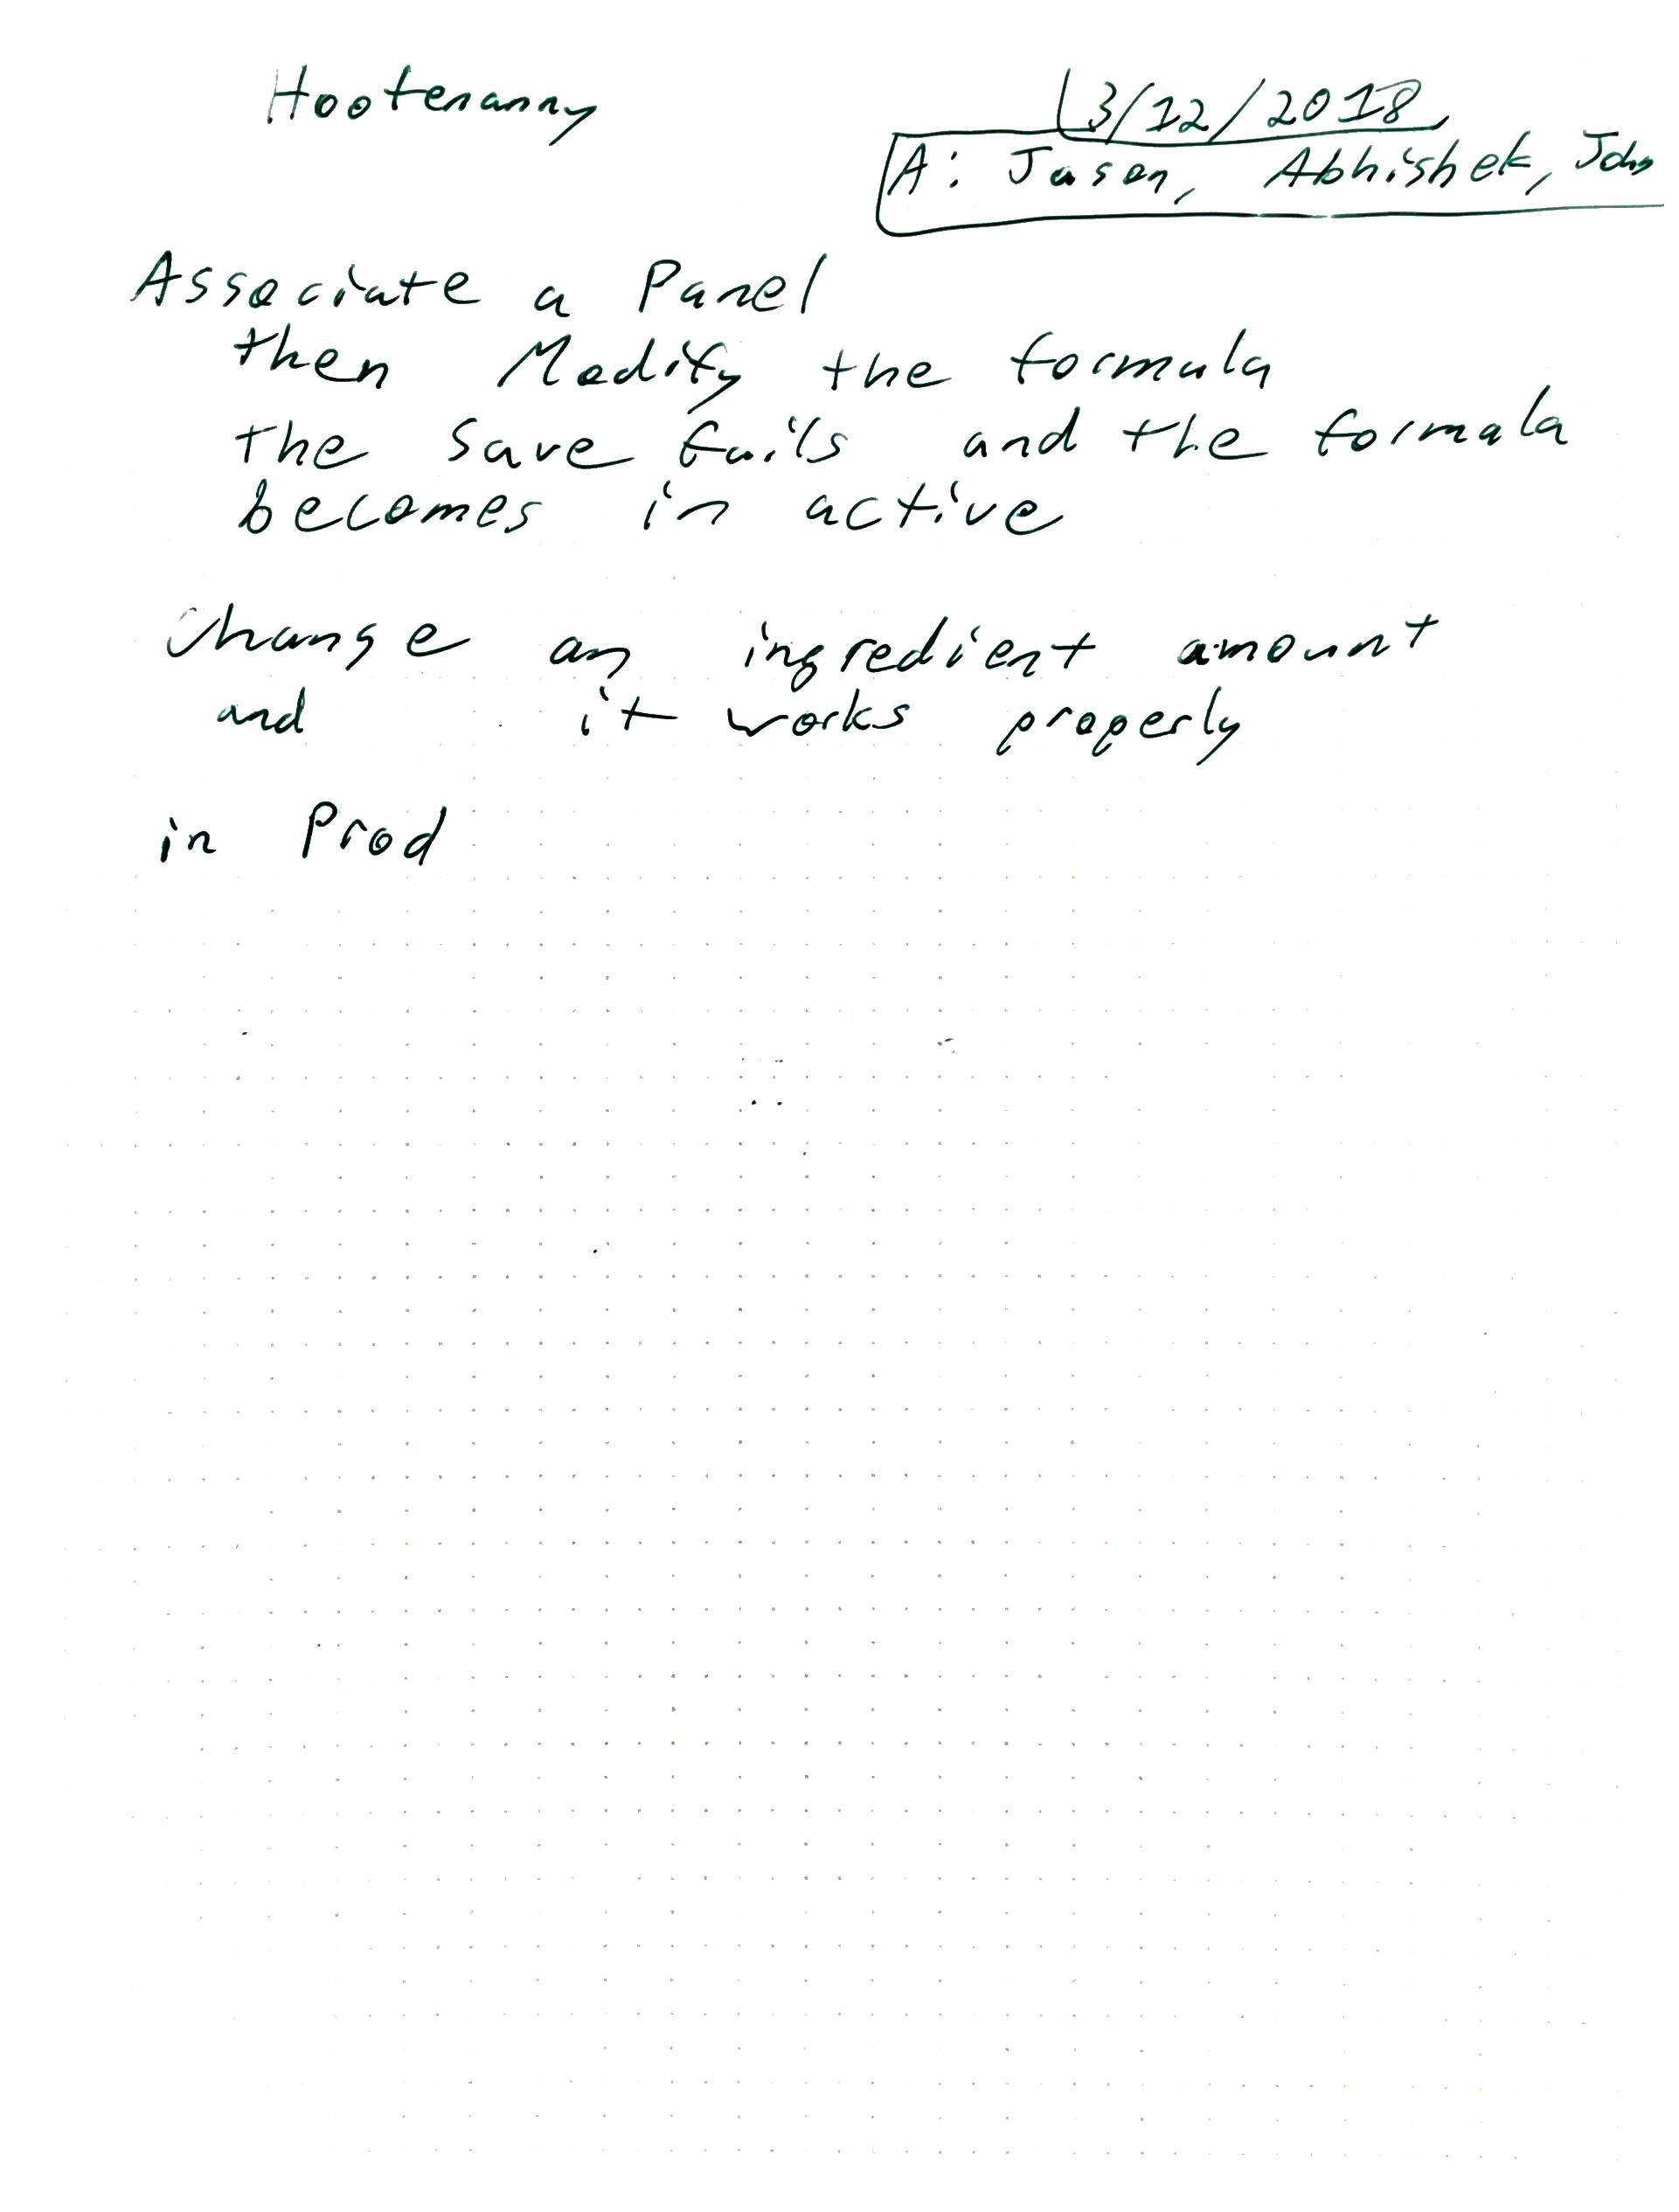 Hootenanny
3/12/2018
A: Jason, Abhishek, John
Associate a Panel
then Modify the formula
the save fails and the formula
becomes in active
Change an ingredient amount
and it works properly
in Prod